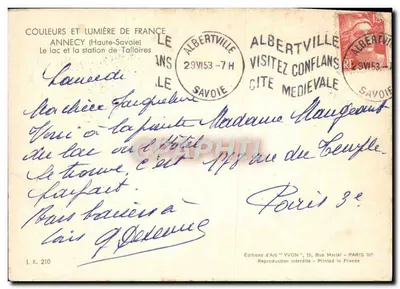 COULEURS ET LUMIÈRE DE FRANCE
ANNECY (Haute-Savoie)
Le lac et la station de Talloires
LE
ANS
LE
ALBERTVILLE
2 9 VI 53 - 7 H
SAVOIE
ALBERTVILLE
VISITEZ CONFLANS
CITE MEDIEVALE
ALBERTVILLE
29 VI 53 - 7
SAVOIE
Samedi
Ma chère Jacqueline
Voici à la pointe
du lac où l'Hôtel
se trouve, c'est
parfait.
Bons baisers à
tous
Madame Maugeant
178 rue du Temple
Paris 3e
J. K. 210
Editions d'Art "YVON", 15, Rue Martel - PARIS 10e
Reproduction interdite - Printed in France